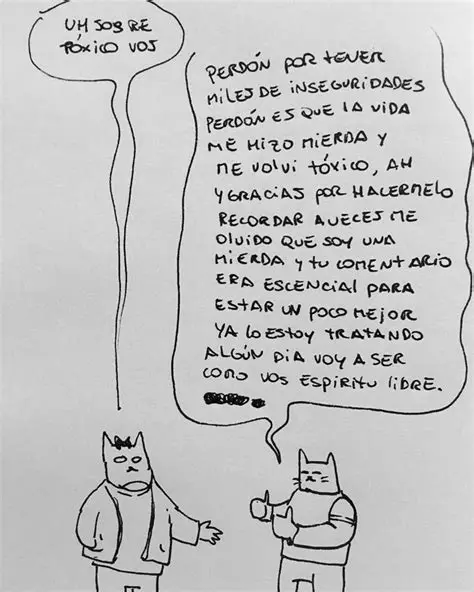 UH SOS RE
TÓXICO VOS
PERDÓN POR TENER
MILES DE INSEGURIDADES
PERDÓN ES QUE LA VIDA
ME HIZO MIERDA Y
ME VOLVI TÓXICO, AH
Y GRACIAS POR HACERMELO
RECORDAR A VECES ME
OLVIDO QUE SOY UNA
MIERDA Y TU COMENTARIO
ERA ESCENCIAL PARA
ESTAR UN POCO MEJOR
YA LO ESTOY TRATANDO
ALGÚN DIA VOY A SER
COMO VOS ESPIRITU LIBRE.